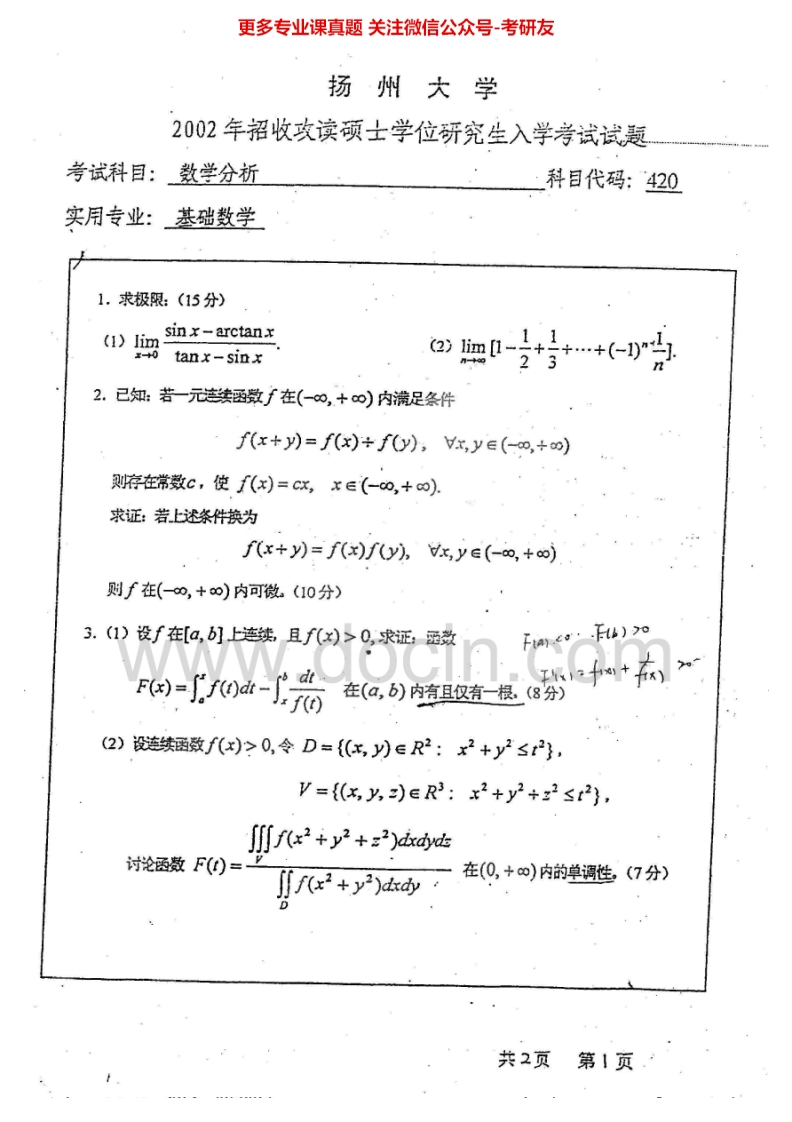 更多专业课真题 关注微信公众号-考研友
扬 州 大 学
2002 年招收攻读硕士学位研究生入学考试试题
考试科目： 数学分析 科目代码： 420
实用专业： 基础数学
1. 求极限:（15 分）
(1) lim_{x→0} (sin x − arctan x)/(tan x − sin x). (2) lim_{n→∞} [1 − 1/2 + 1/3 + ⋯ + (−1)^{n+1} 1/n].
2. 已知: 若一元连续函数 f 在(−∞, +∞) 内满足条件
f(x+y) = f(x) + f(y), ∀x, y ∈ (−∞, +∞)
则存在常数c，使 f(x) = cx, x ∈ (−∞, +∞).
求证: 若上述条件换为
f(x+y) = f(x)f(y), ∀x, y ∈ (−∞, +∞)
则 f 在(−∞, +∞) 内可微。（10 分）
3. (1) 设 f 在[a, b] 上连续，且 f(x) > 0, 求证: 函数
F(a) <0 F(b) >0
F'(x) = f(x) + 1/f(x) >0
F(x) = ∫_a^x f(t)dt − ∫_x^b dt/f(t) 在(a, b) 内有且仅有一根。（8 分）
(2) 设连续函数 f(x) > 0, 令 D = {(x, y) ∈ R² : x² + y² ≤ t²},
V = {(x, y, z) ∈ R³ : x² + y² + z² ≤ t²},
讨论函数 F(t) = ∭_V f(x² + y² + z²)dxdydz / ∬_D f(x² + y²)dxdy 在(0, +∞) 内的单调性。（7 分）
www.docin.com
共 2 页 第 1 页